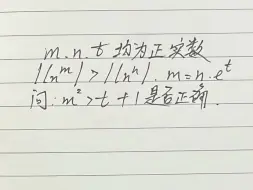 m.n.t 均为正实数
|lnᵐ| > |lnⁿ|. m=n·eᵗ
问: m²>t+1是否正确.